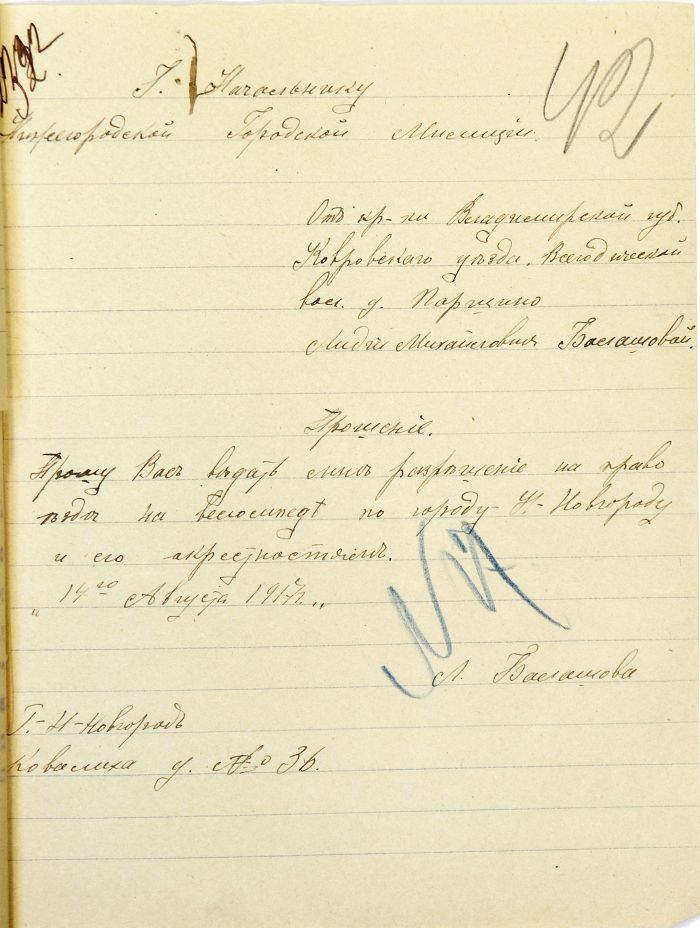 322.
42
Г. Начальнику
Нижегородской Городской Милиции.
Отъ кр-ки Владимирской губ.
Ковровского уѣзда, Всегодической
вол. д. Паршино
Лидiи Михайловны Балашовой.
Прошенiе.
Прошу Васъ выдать мнѣ разрѣшенiе на право
ѣзды на велосипедѣ по городу Н-Новгороду
и его окрестностямъ.
„ 14го Августа 1917г. „
Л. Балашова
Г.-Н-Новгородъ
Ковалиха д. № 36.